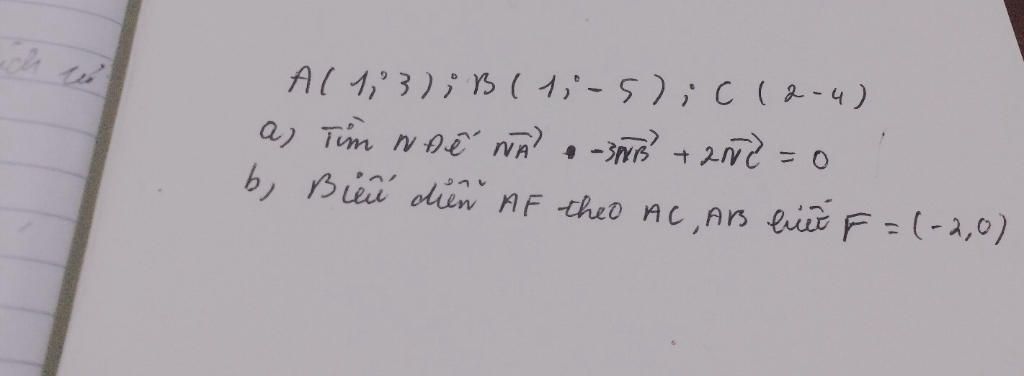 A(1;3);B(1;-5);C(2-4)
a) Tìm N Để NA⃗ • -3NB⃗ + 2NC⃗ = 0
b) Biểu diễn AF theo AC, AB biết F = (-2,0)